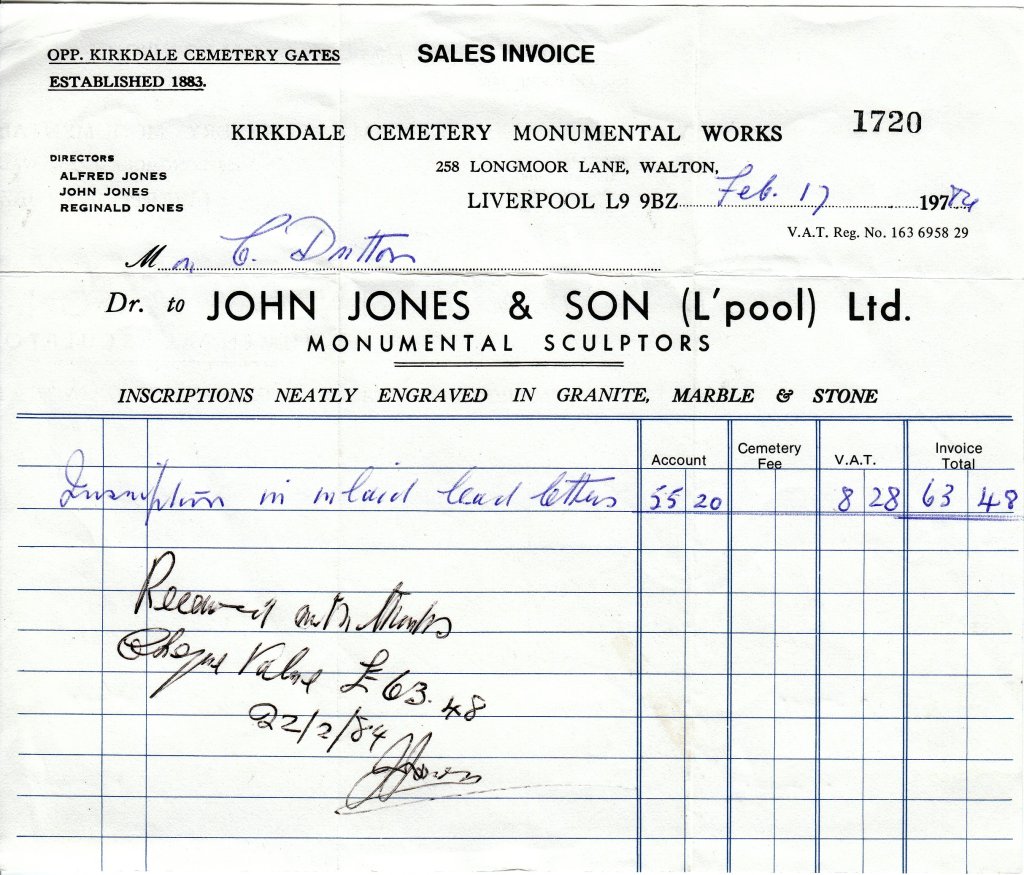 OPP. KIRKDALE CEMETERY GATES
ESTABLISHED 1883.
SALES INVOICE
1720
KIRKDALE CEMETERY MONUMENTAL WORKS
DIRECTORS
ALFRED JONES
JOHN JONES
REGINALD JONES
258 LONGMOOR LANE, WALTON,
LIVERPOOL L9 9BZ Feb. 17 19784
V.A.T. Reg. No. 163 6958 29
M C. Dutton
Dr. to JOHN JONES & SON (L'pool) Ltd.
MONUMENTAL SCULPTORS
INSCRIPTIONS NEATLY ENGRAVED IN GRANITE, MARBLE & STONE
Account Cemetery Fee V.A.T. Invoice Total
Inscription in inlaid lead letters 55 20 8 28 63 48
Received with thanks
Cheque Value £63.48
22/2/84
J Jones